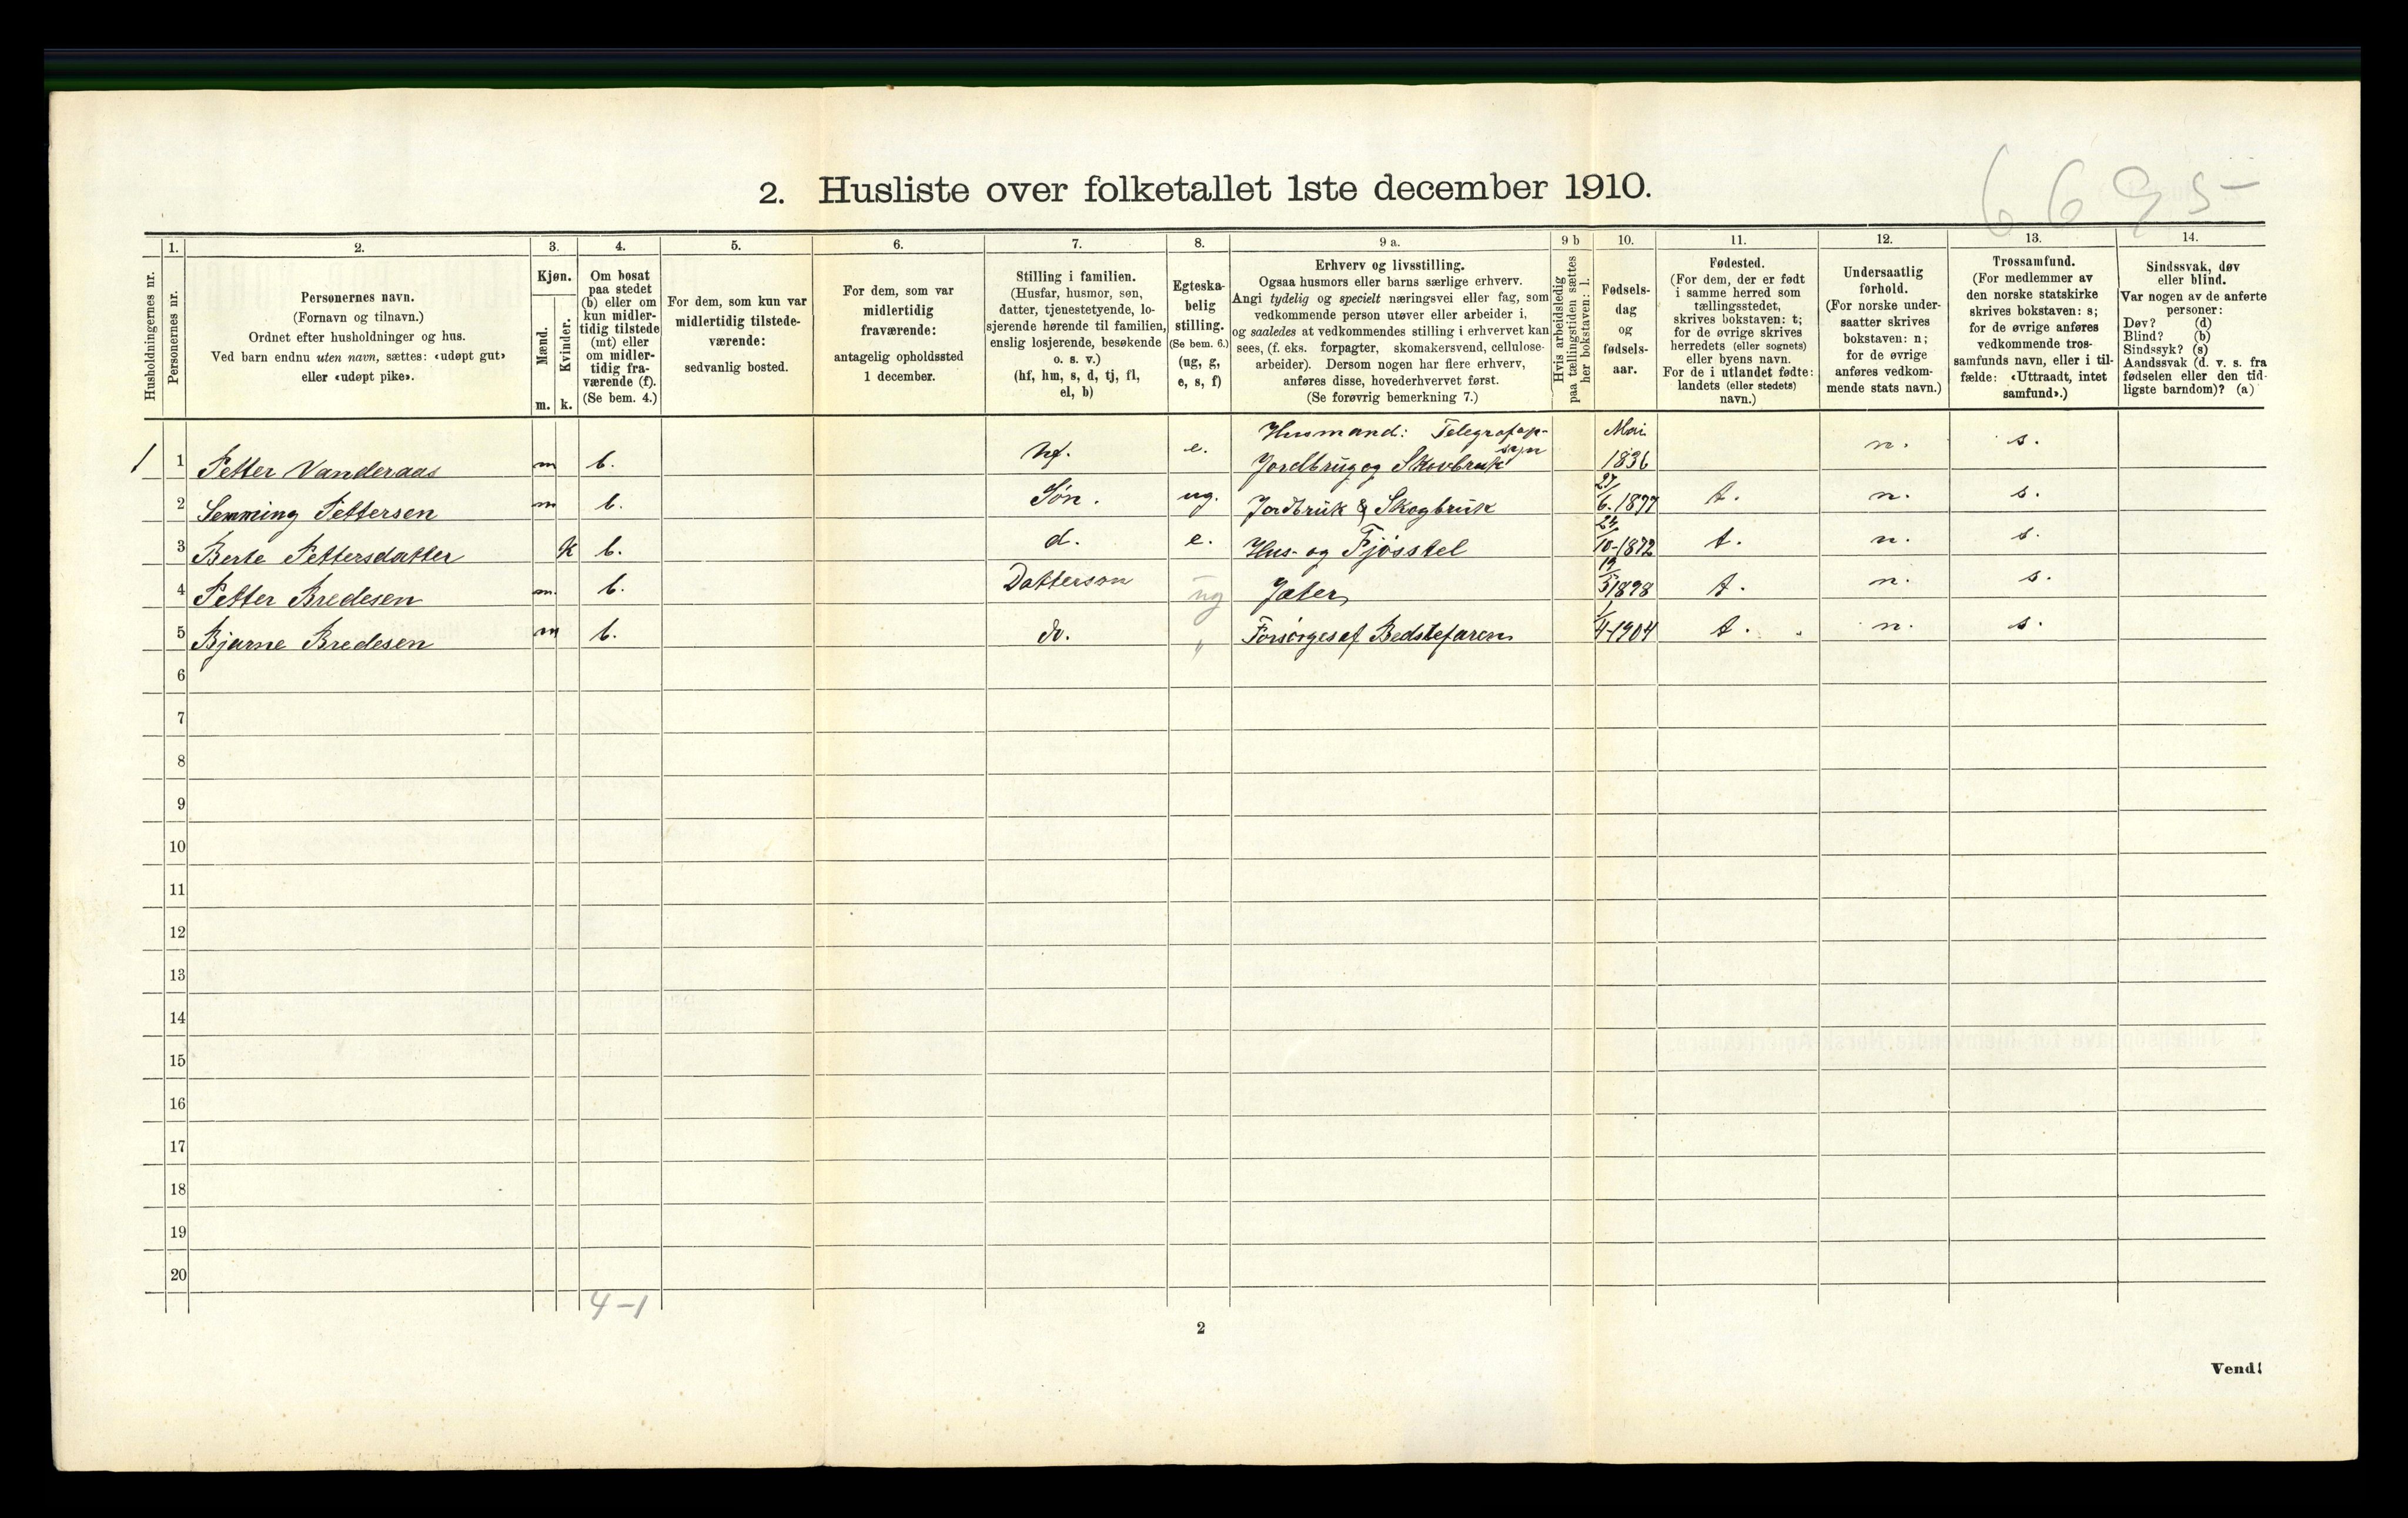 6695-
2. Husliste over folketallet 1ste december 1910.
Husholdningernes nr.
1.
Personernes nr.
2.
Personernes navn.
(Fornavn og tilnavn.)
Ordnet efter husholdninger og hus.
Ved barn endnu uten navn, sættes: «udøpt gut»
eller «udøpt pike».
3.
Kjøn.
Mænd.
Kvinder.
m. k.
4.
Om bosat
paa stedet
(b) eller om
kun midler-
tidig tilstede
(mt) eller
om midler-
tidig fra-
værende (f).
(Se bem. 4.)
5.
For dem, som kun var
midlertidig tilstede-
værende:
sedvanlig bosted.
6.
For dem, som var
midlertidig
fraværende:
antagelig opholdssted
1 december.
7.
Stilling i familien.
(Husfar, husmor, søn,
datter, tjenestetyende, lo-
sjerende hørende til familien,
enslig losjerende, besøkende
o. s. v.)
(hf, hm, s, d, tj, fl,
el, b)
8.
Egteska-
belig
stilling.
(Se bem. 6.)
(ug, g,
e, s, f)
9 a.
Erhverv og livsstilling.
Ogsaa husmors eller barns særlige erhverv.
Angi tydelig og specielt næringsvei eller fag, som
vedkommende person utøver eller arbeider i,
og saaledes at vedkommendes stilling i erhvervet kan
sees, (f. eks. forpagter, skomakersvend, cellulose-
arbeider). Dersom nogen har flere erhverv,
anføres disse, hovederhvervet først.
(Se forøvrig bemerkning 7.)
9 b
Hvis arbeidsledig
paa tællingstiden sættes
her bokstaven: l.
10.
Fødsels-
dag
og
fødsels-
aar.
11.
Fødested.
(For dem, der er født
i samme herred som
tællingsstedet,
skrives bokstaven: t;
for de øvrige skrives
herredets (eller sognets)
eller byens navn.
For de i utlandet fødte:
landets (eller stedets)
navn.)
12.
Undersaatlig
forhold.
(For norske under-
saatter skrives
bokstaven: n;
for de øvrige
anføres vedkom-
mende stats navn.)
13.
Trossamfund.
(For medlemmer av
den norske statskirke
skrives bokstaven: s;
for de øvrige anføres
vedkommende tros-
samfunds navn, eller i til-
fælde: «Uttraadt, intet
samfund».)
14.
Sindssvak, døv
eller blind.
Var nogen av de anførte
personer:
Døv? (d)
Blind? (b)
Sindssyk? (s)
Aandssvak (d. v. s. fra
fødselen eller den tid-
ligste barndom)? (a)
1 1 Petter Vanderaas m b. hf. e. Husmand: Telegrafop-
syn Jordbrug og Skovbruk Mai 1836 n. s.
2 Semming Pettersen m b. Søn. ug. Jordbruk & Skogbruk 27/6-1877 t. n. s.
3 Berte Pettersdatter k b. d. e. Hus- og Fjøsstel 24/10-1872 t. n. s.
4 Petter Bredesen m. b. Datterson ug Jæter 19/5 1898 t. n. s.
5 Bjarne Bredesen m b. do. " Forsørges af Bedstefaren 1/4-1904 t. n. s.
6
7
8
9
10
11
12
13
14
15
16
17
18
19
20
4-1
2
Vend!